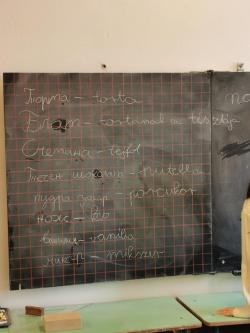 Торта - torta
Блат - tortának a tésztája
Сметана - tejföl
Течен шоколад - nutella
пудра захар - porcukor
нож - kés
ванилия - vanilia
миксер - mikszer